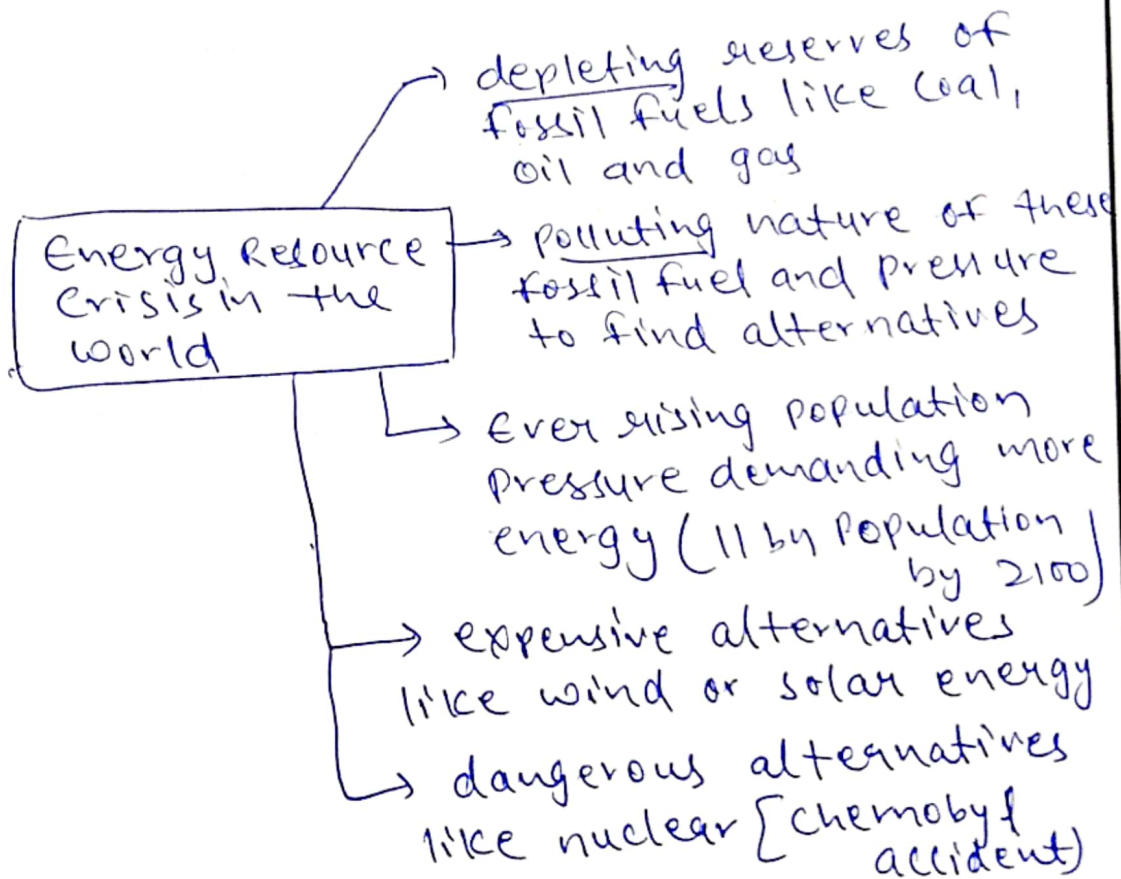 Energy Resource
Crisis in the
world
depleting reserves of
fossil fuels like coal,
oil and gas
polluting nature of these
fossil fuel and pressure
to find alternatives
Ever rising population
pressure demanding more
energy (11 bn population
by 2100)
expensive alternatives
like wind or solar energy
dangerous alternatives
like nuclear [Chernobyl
accident)